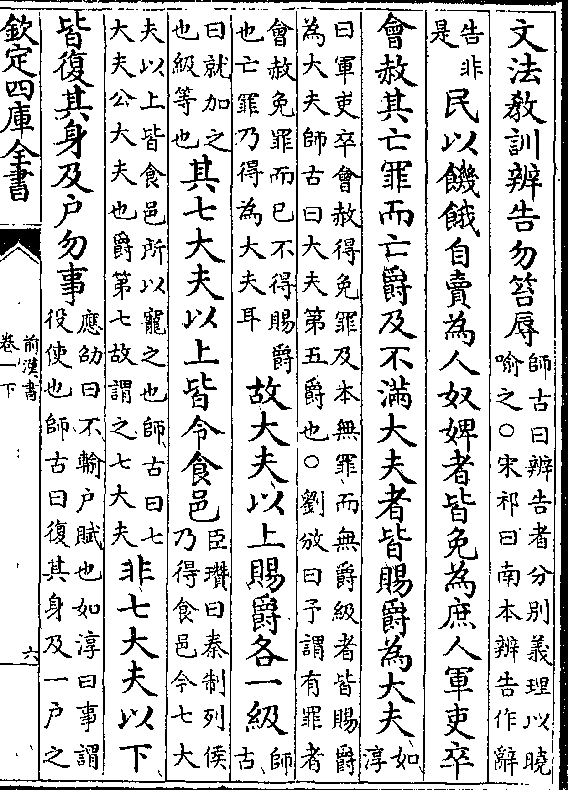 文法敎訓辨告勿笞辱師古曰辨告者分別義理以曉
喻之○宋祁曰南本辨告作辭
告非
是民以饑餓自賣為人奴婢者皆免為庶人軍吏卒
會赦其亡罪而亡爵及不滿大夫者皆賜爵為大夫如
淳
曰軍吏卒會赦得免罪及本無罪而無爵級者皆賜爵
為大夫師古曰大夫第五爵也○劉攽曰予謂有罪者
會赦免罪而已不得賜爵
也亡罪乃得為大夫耳故大夫以上賜爵各一級師
古
曰就加之
也級等也其七大夫以上皆令食邑臣瓚曰秦制列侯
乃得食邑今七大
夫以上皆食邑所以寵之也師古曰七
大夫公大夫也爵第七故謂之七大夫非七大夫以下
皆復其身及户勿事應劭曰不輸户賦也如淳曰事謂
役使也師古曰復其身及一户之
欽定四庫全書
前漢書
卷一下
六